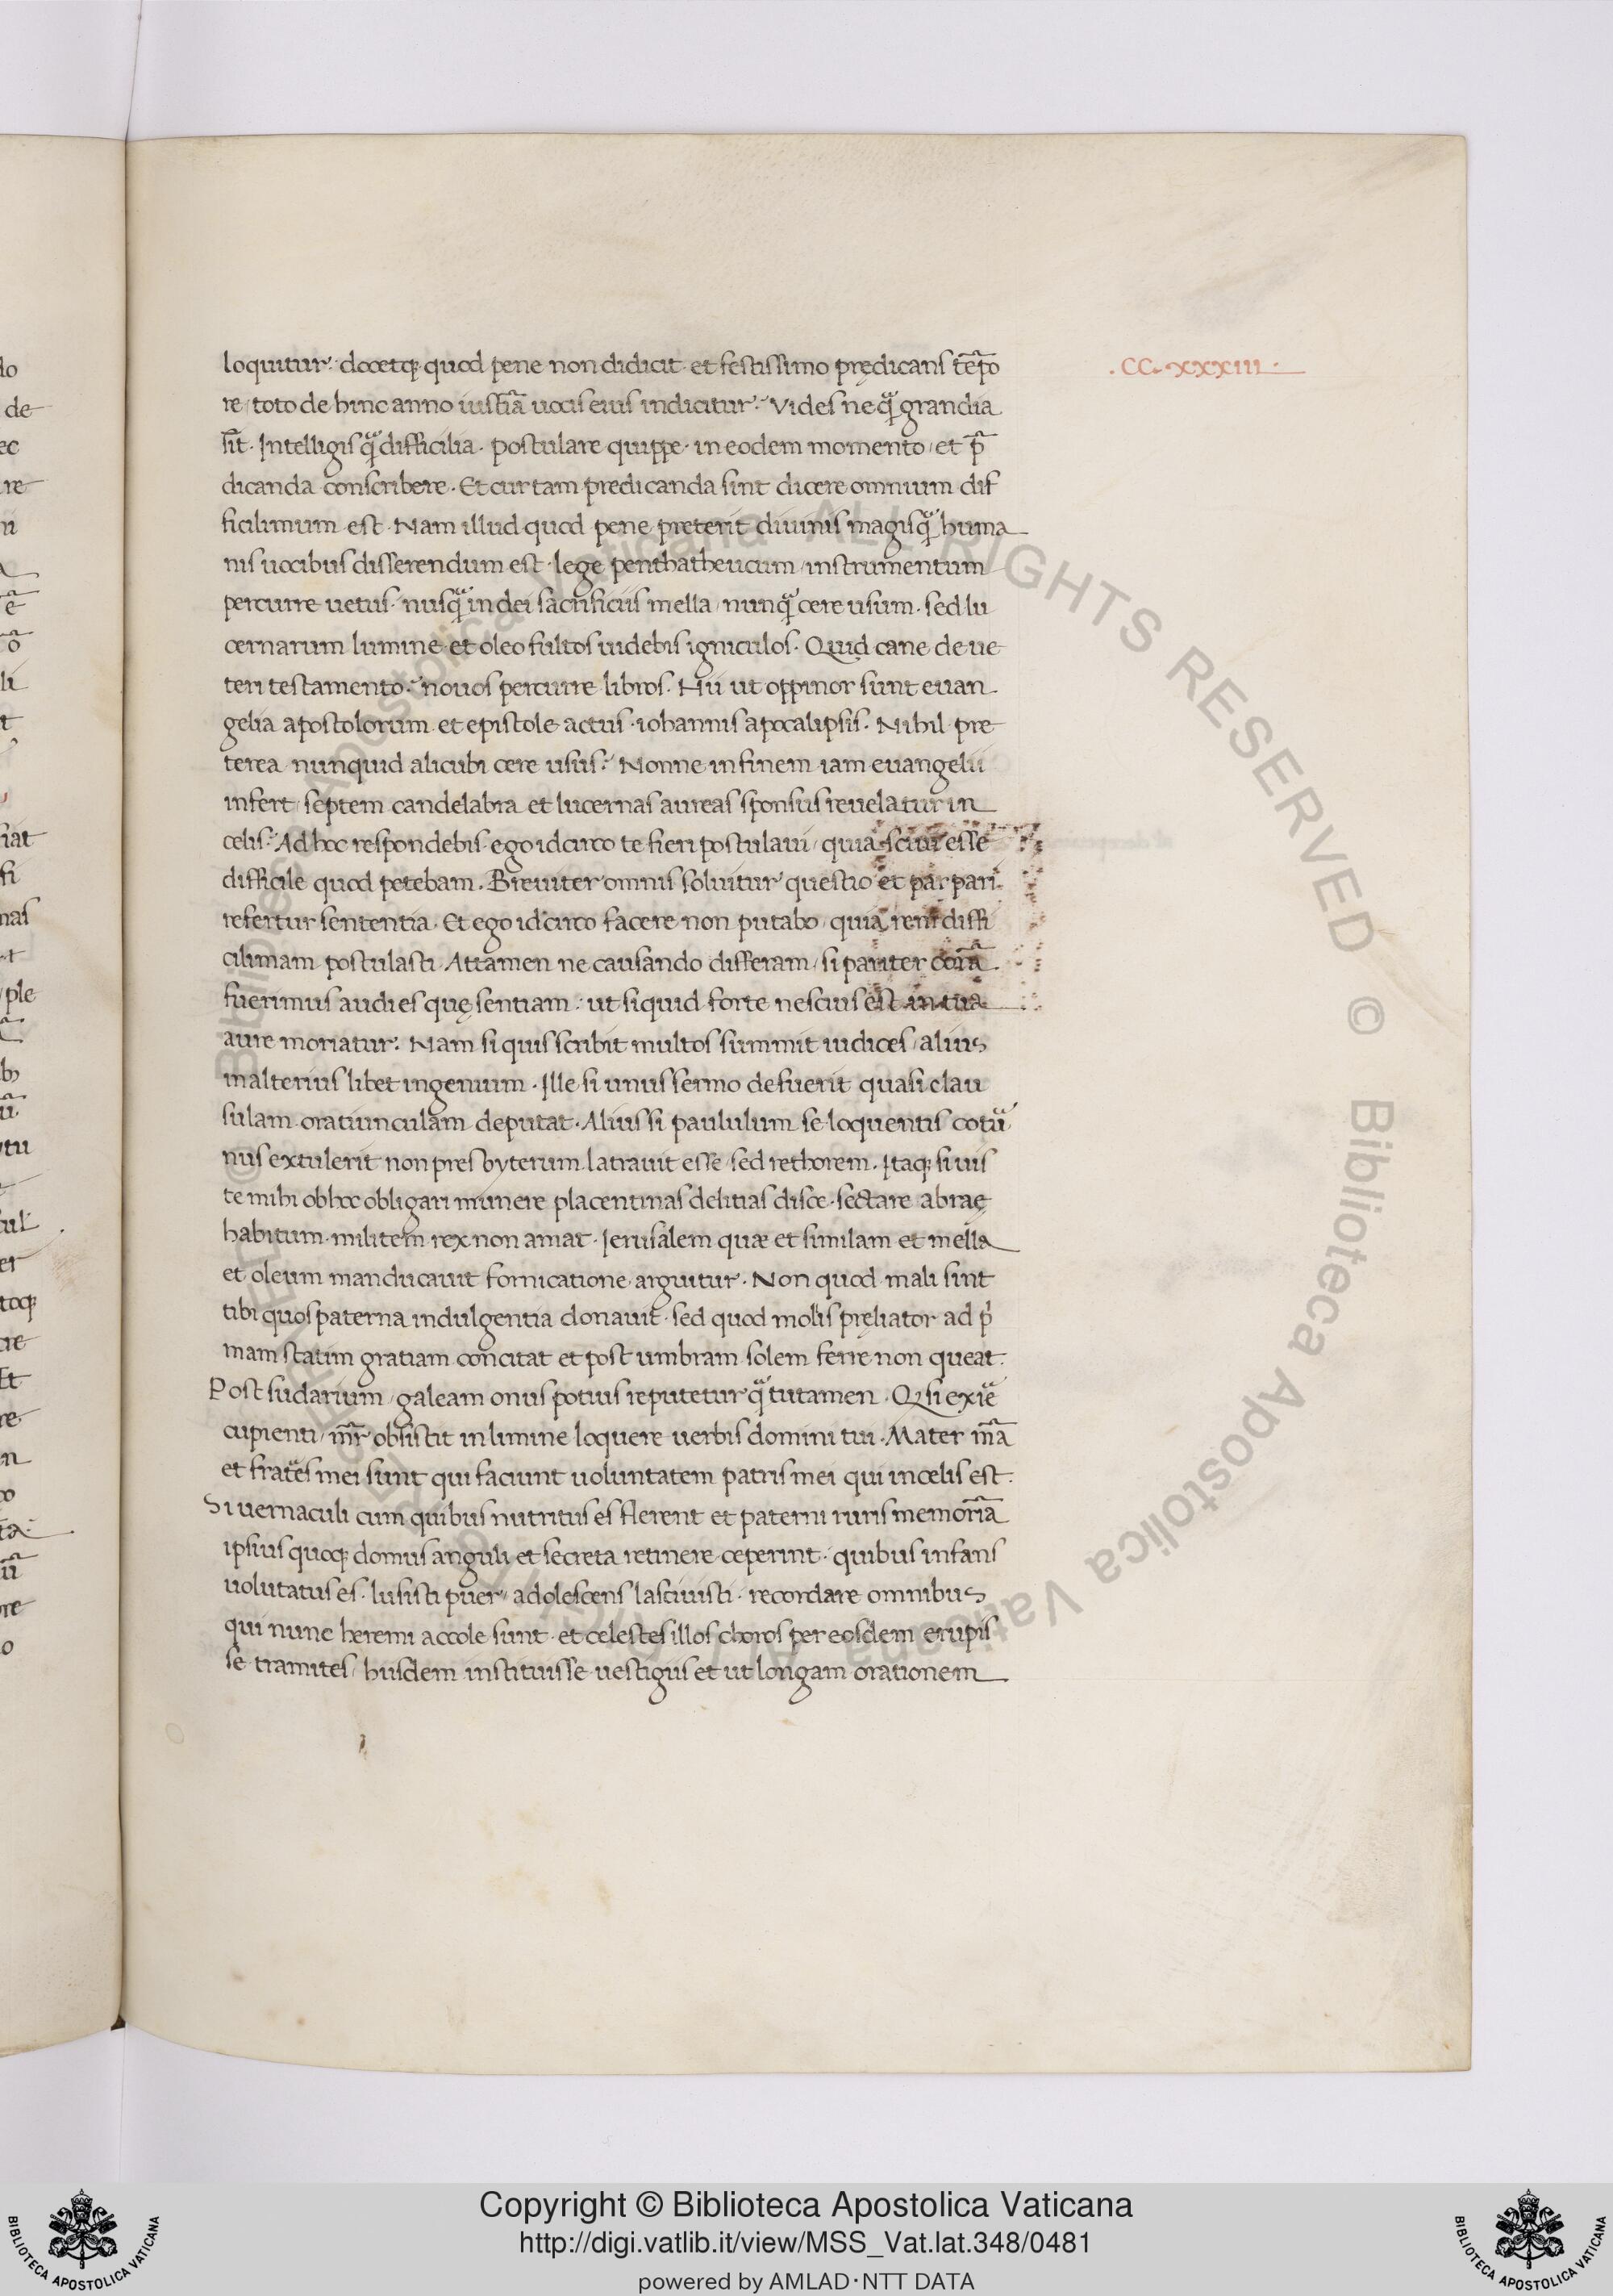 loquitur. docetq; quod pene non didicit. et festissimo prędicans tēpo
.CC.XXXIII.
re, toto de hinc anno iustitiā uocis eius indicitur. Vides ne q̄ grandia
sīt. Intelligis q̄ difficilia. postulare quippe. in eodem momento, et p̄
dicanda conscribere. Et cur tam predicanda sint dicere omnium dif
ficilimum est. Nam illud quod pene preterit diuinis magisq̄ huma
nis uocibus disserendum est. lege penthatheucum, instrumentum
percurre uetus. nusq̄ in dei sacrificiis mella, nunq̄ cere usum. sed lu
cernarum lumine et oleo fultos uidebis igniculos. Quid cane de ue
teri testamento. nouos percurre libros. Hii ut oppinor sunt euan
gelia apostolorum et epistole actus. iohannis apocalipsis. Nihil pre
terea nunquid alicubi cere usus. Nonne in finem iam euangelii
infert, septem candelabra et lucernas aureas sponsus reuelatur in
celis. Ad hoc respondebis. ego idcirco te fieri postulaui, quia sciui esse
difficile quod petebam. Breuiter omnis soluitur questio et par pari
refertur sententia. Et ego idcirco facere non putabo, quia rem diffi
cilimam postulasti. Attamen ne causando differam, si pariter corā
fuerimus audies quę sentiam. ut si quid forte nescius est in tua
aure moriatur. Nam si quis scribit multos summit iudices, alius
in alterius libet ingenium. Ille si unus sermo defuerit quasi clau
sulam oratiunculam deputat. Alius si paululum se loquentis cotū
nus extulerit non presbyterum latrauit esse, sed rethorem. Itaq; si uis
te mihi ob hoc obligari munere placentinas delitias disce. sectare abraę
habitum. militem rex non amat. Jerusalem quæ et similam et mella
et oleum manducauit fornicatione arguitur. Non quod mali sint
tibi quos paterna indulgentia donauit. sed quod molis pręliator ad p̄
mam statim gratiam concitat et post umbram solem ferre non queat.
Post sudarium, galeam onus potius reputetur q̄ tutamen. Q si exire
cupienti, mr̄ obsistit in limine loquere uerbis domini tui. Mater m̄a
et fratres mei sunt qui faciunt uoluntatem patris mei qui in celis est.
Si uernaculi cum quibus nutritus es flerent et paterni ruris memoriā
ipsius quoq; domus anguli et secreta retinere ceperint. quibus infans
uolutatus es. lusisti puer, adolescens lasciuisti. recordare omnibus
qui nunc heremi accole sunt. et celestes illos choros per eosdem erupis
se tramites, hiisdem instituisse uestigiis et ut longam orationem
Copyright © Biblioteca Apostolica Vaticana
http://digi.vatlib.it/view/MSS_Vat.lat.348/0481
powered by AMLAD·NTT DATA
BIBLIOTECA APOSTOLICA VATICANA
BIBLIOTECA APOSTOLICA VATICANA